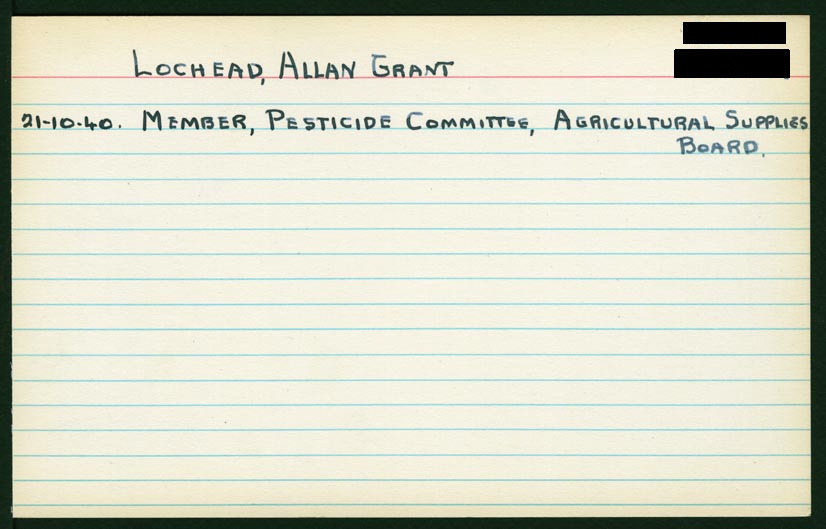 Lochead, Allan Grant
21-10-40. Member, Pesticide Committee, Agricultural Supplies
Board.